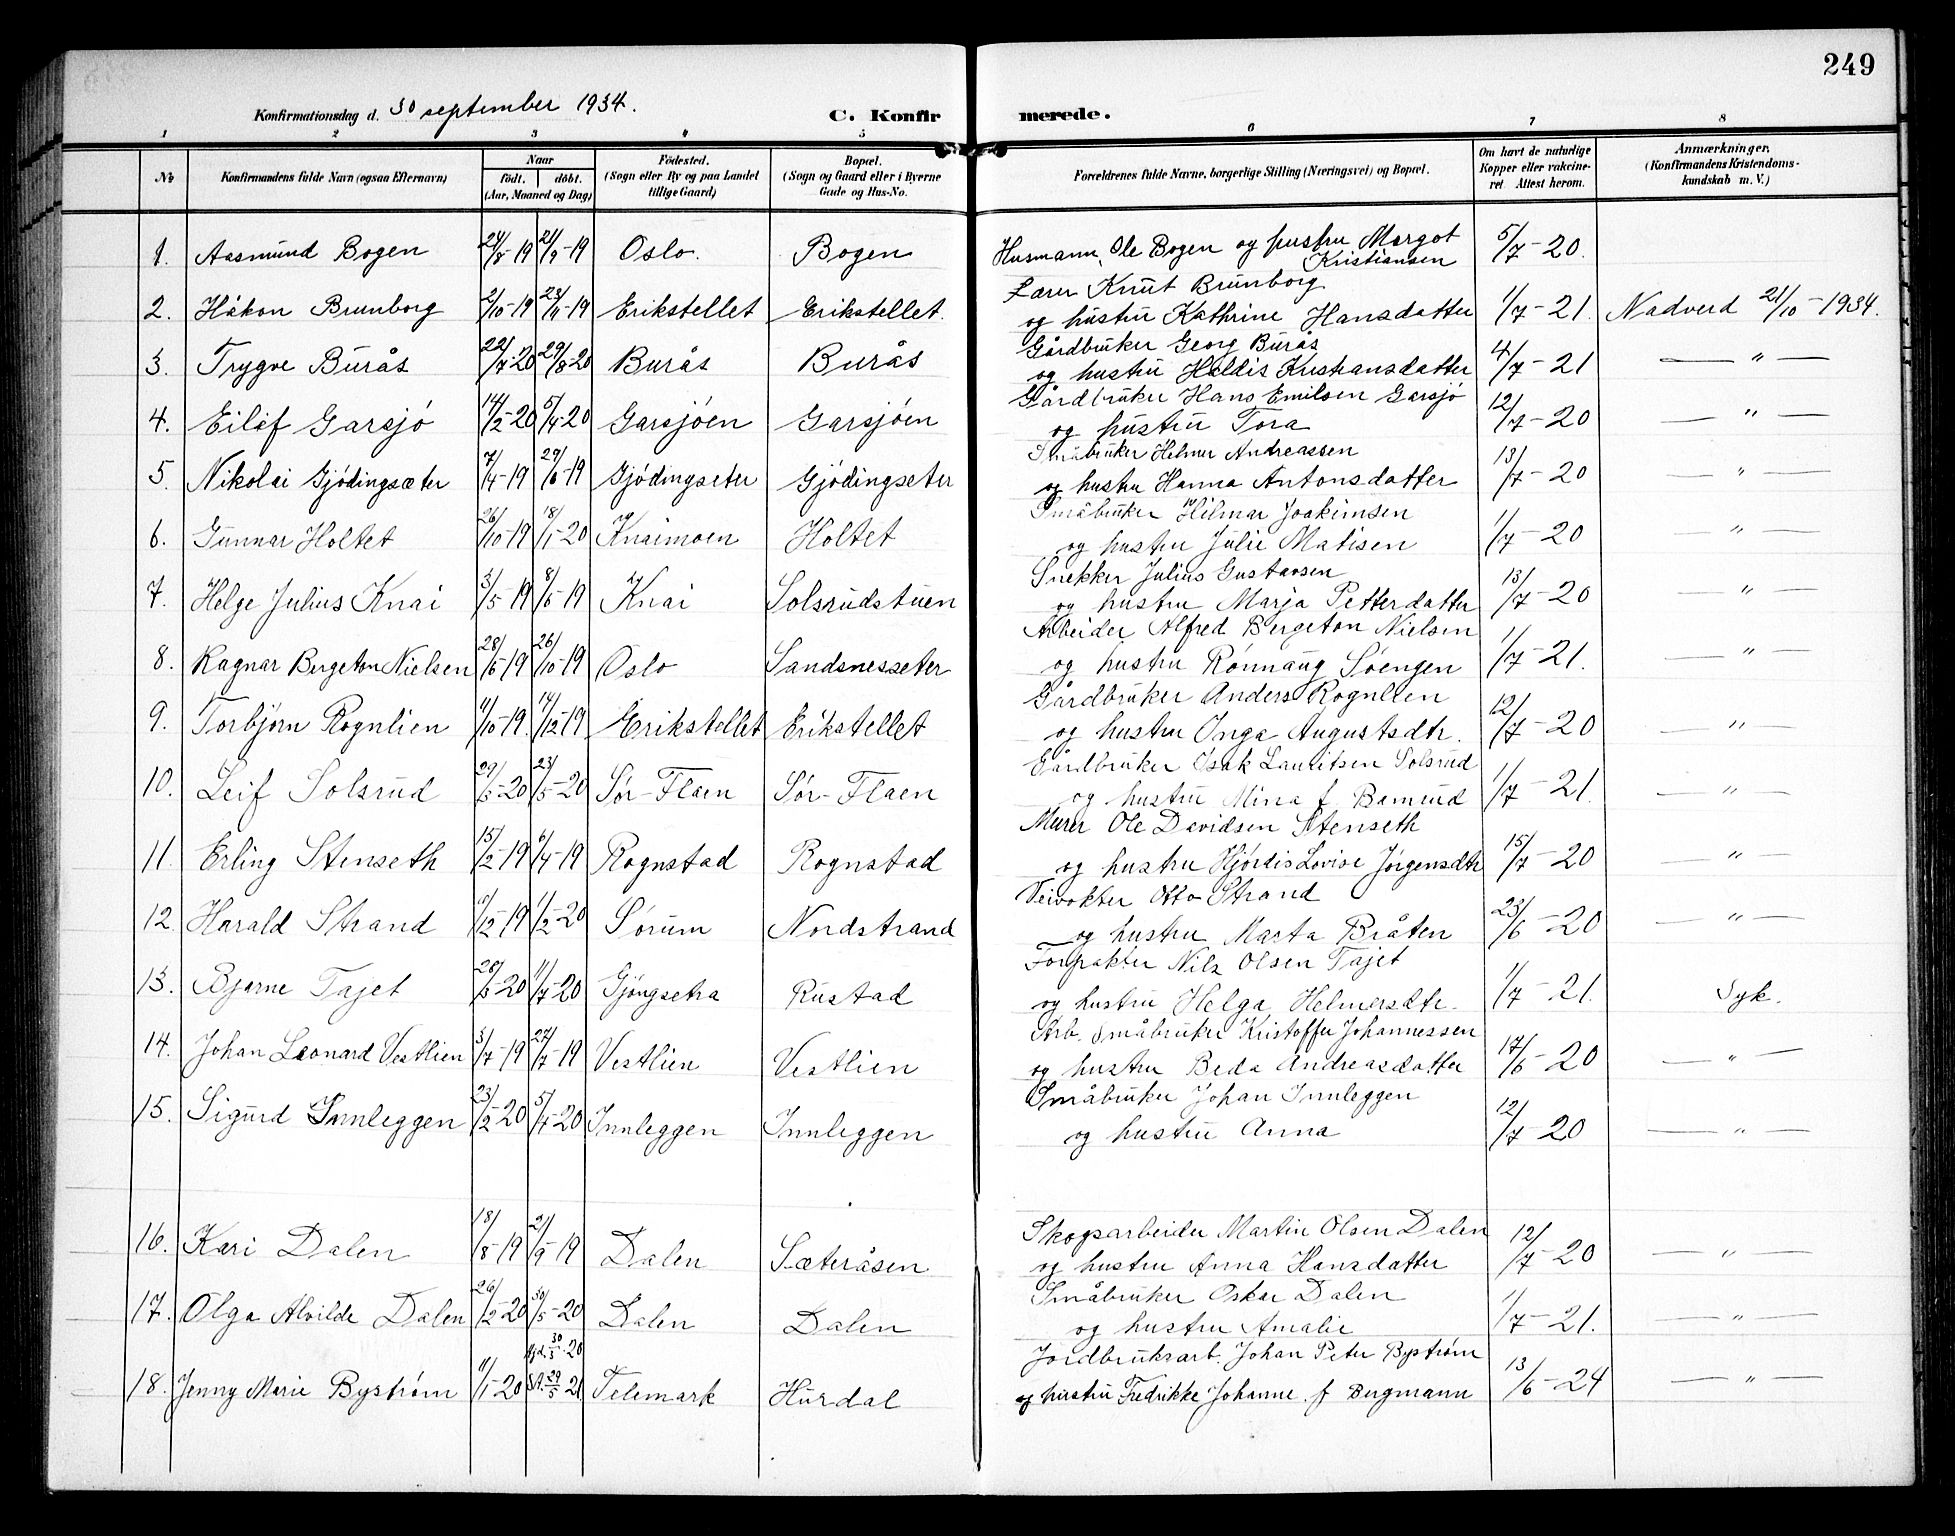 249
Konfirmationsdag d. 30 september 1934. C. Konfirmerede.
1 2 3 4 5 6 7 8
No Konfirmandens fulde Navn (ogsaa Efternavn) Naar født. døbt. (Aar, Maaned og Dag) Fødested. (Sogn eller By og paa Landet tillige Gaard) Bopæl. (Sogn og Gaard eller i Byerne Gade og Hus-No. Forældrenes fulde Navne, borgerlige Stilling (Næringsvei) og Bopæl. Om havt de naturlige Kopper eller vakcineret. Attest herom. Anmærkninger. (Konfirmandens Kristendomskundskab m. V.)
1. Aasmund Bogen 24/8-19 21/9-19 Oslo. Bogen Husmann, Ole Bogen og hustru Margot Kristiansen 5/7-20.
2. Håkon Brunborg 2/10-19 23/11-19 Erikstellet Erikstellet. Lærer Knut Brunborg
og hustru Kathrine Hansdatter 1/7-21. Nadverd 21/10-1934.
3. Trygve Burås 22/7-20 29/8-20 Burås Burås Gårdbruker Georg Burås
og hustru Haldis Kristiansdatter 4/7-21 — " —
4. Eilif Garsjø 14/2-20 5/4-20 Garsjøen Garsjøen Gårdbruker Hans Emilsen Garsjø
og hustru Tora 12/7-20 — " —
5. Nikolai Gjødingsæter 7/4-19 29/6-19 Gjødingseter Gjødingseter Småbruker Helmer Andreassen
og hustru Hanna Antonsdatter 13/7-20 — " —
6. Gunnar Holtet 26/10-19 18/1-20 Knaimoen Holtet Småbruker Hilmar Joakimsen
og hustru Julie Matisen 1/7-20 — " —
7. Helge Julius Knai 3/5-19 8/6-19 Knai Solsrudstuen Snekker Julius Gustavsen
og hustru Marja Petterdatter 13/7-20 — " —
8. Ragnar Bergeton Nielsen 28/6-19 26/10-19 Oslo Sandsnesseter Arbeider Alfred Bergeton Nielsen
og hustru Rønnaug Søengen 1/7-21. — " —
9. Torbjørn Rognlien 11/10-19. 14/12-19 Erikstellet Erikstellet Gårdbruker Anders Rognlien
og hustru Inga Augustsdtr. 12/7-20 — " —
10. Leif Solsrud 29/3-20 23/5-20 Sør-Flaen Sør-Flaen Gårdbruker Isak Lauritsen Solsrud
og hustru Mina f. 1/7-21. — " —
11. Erling Stenseth 15/2-19 6/4-19 Rognstad Rognstad Murer Ole Davidsen Stenseth
og hustru Hjørdis Lovise Jørgensdtr 15/7-20 — " —
12 Harald Strand 11/12-19 1/2-20 Sørum Nordstrand Veivokter Otto Strand
og hustru Marta Bråten 23/6-20 — " —
13. Bjarne Tajet 28/3-20 11/7-20 Gjøngsetra Rustad Forpakter Nils Olsen Tajet
og hustru Helga Helmersdtr. 1/7-21. Syk.
14. Johan Leonard Vestlien 3/7-19 27/7-19 Vestlien Vestlien Arb. småbruker Kristoffer Johannessen
og hustru Beda Andreasdatter 17/6-20 — " —
15. Sigurd Innleggen 23/2-20 5/4-20 Innleggen Innleggen Småbruker Johan Innleggen
og hustru Anna 12/7-20 — " —
16. Kari Dalen 18/8-19 21/9-19 Dalen Sæteråsen Skogsarbeider Martin Olsen Dalen
og hustru Anna Hansdatter 12/7-20 — " —
17. Olga Alvilde Dalen 26/2-20 30/5-20 Dalen Dalen Småbruker Oskar Dalen
og hustru Amalie 1/7-21. — " —
18. Jenny Marie Bystrøm 11/1-20 30/3-20 29/5 21 Telemark Hurdal Jordbruksarb. Johan Peter Bystrøm
og hustru Fredrikke Johanne f Bergmann 13/6-24 — " —